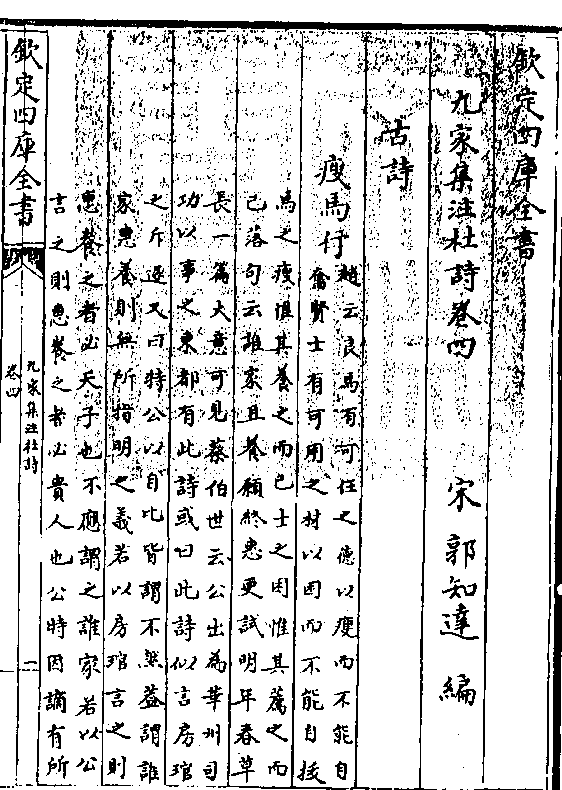 欽定四庫全書
九家集注杜詩卷四　宋 郭知達 編
古詩
瘦馬行
趙云良馬有可任之德以瘦而不能自
奮賢士有可用之材以困而不能自拔
馬之瘦惟其養之而已士之困惟其薦之而
已落句云誰家且養願終惠更試明年春草
長一篇大意可見蔡伯世云公出為華州司
功以事之東都有此詩或曰此詩似言房琯
之斥逐又曰特公以自比皆謂不然蓋謂誰
家惠養則無所指明之義若以房琯言之則
惠養之者必天子也不應謂之誰家若以公
言之則惠養之者必貴人也公時因謫有所
欽定四庫全書
九家集注杜詩
卷四
一